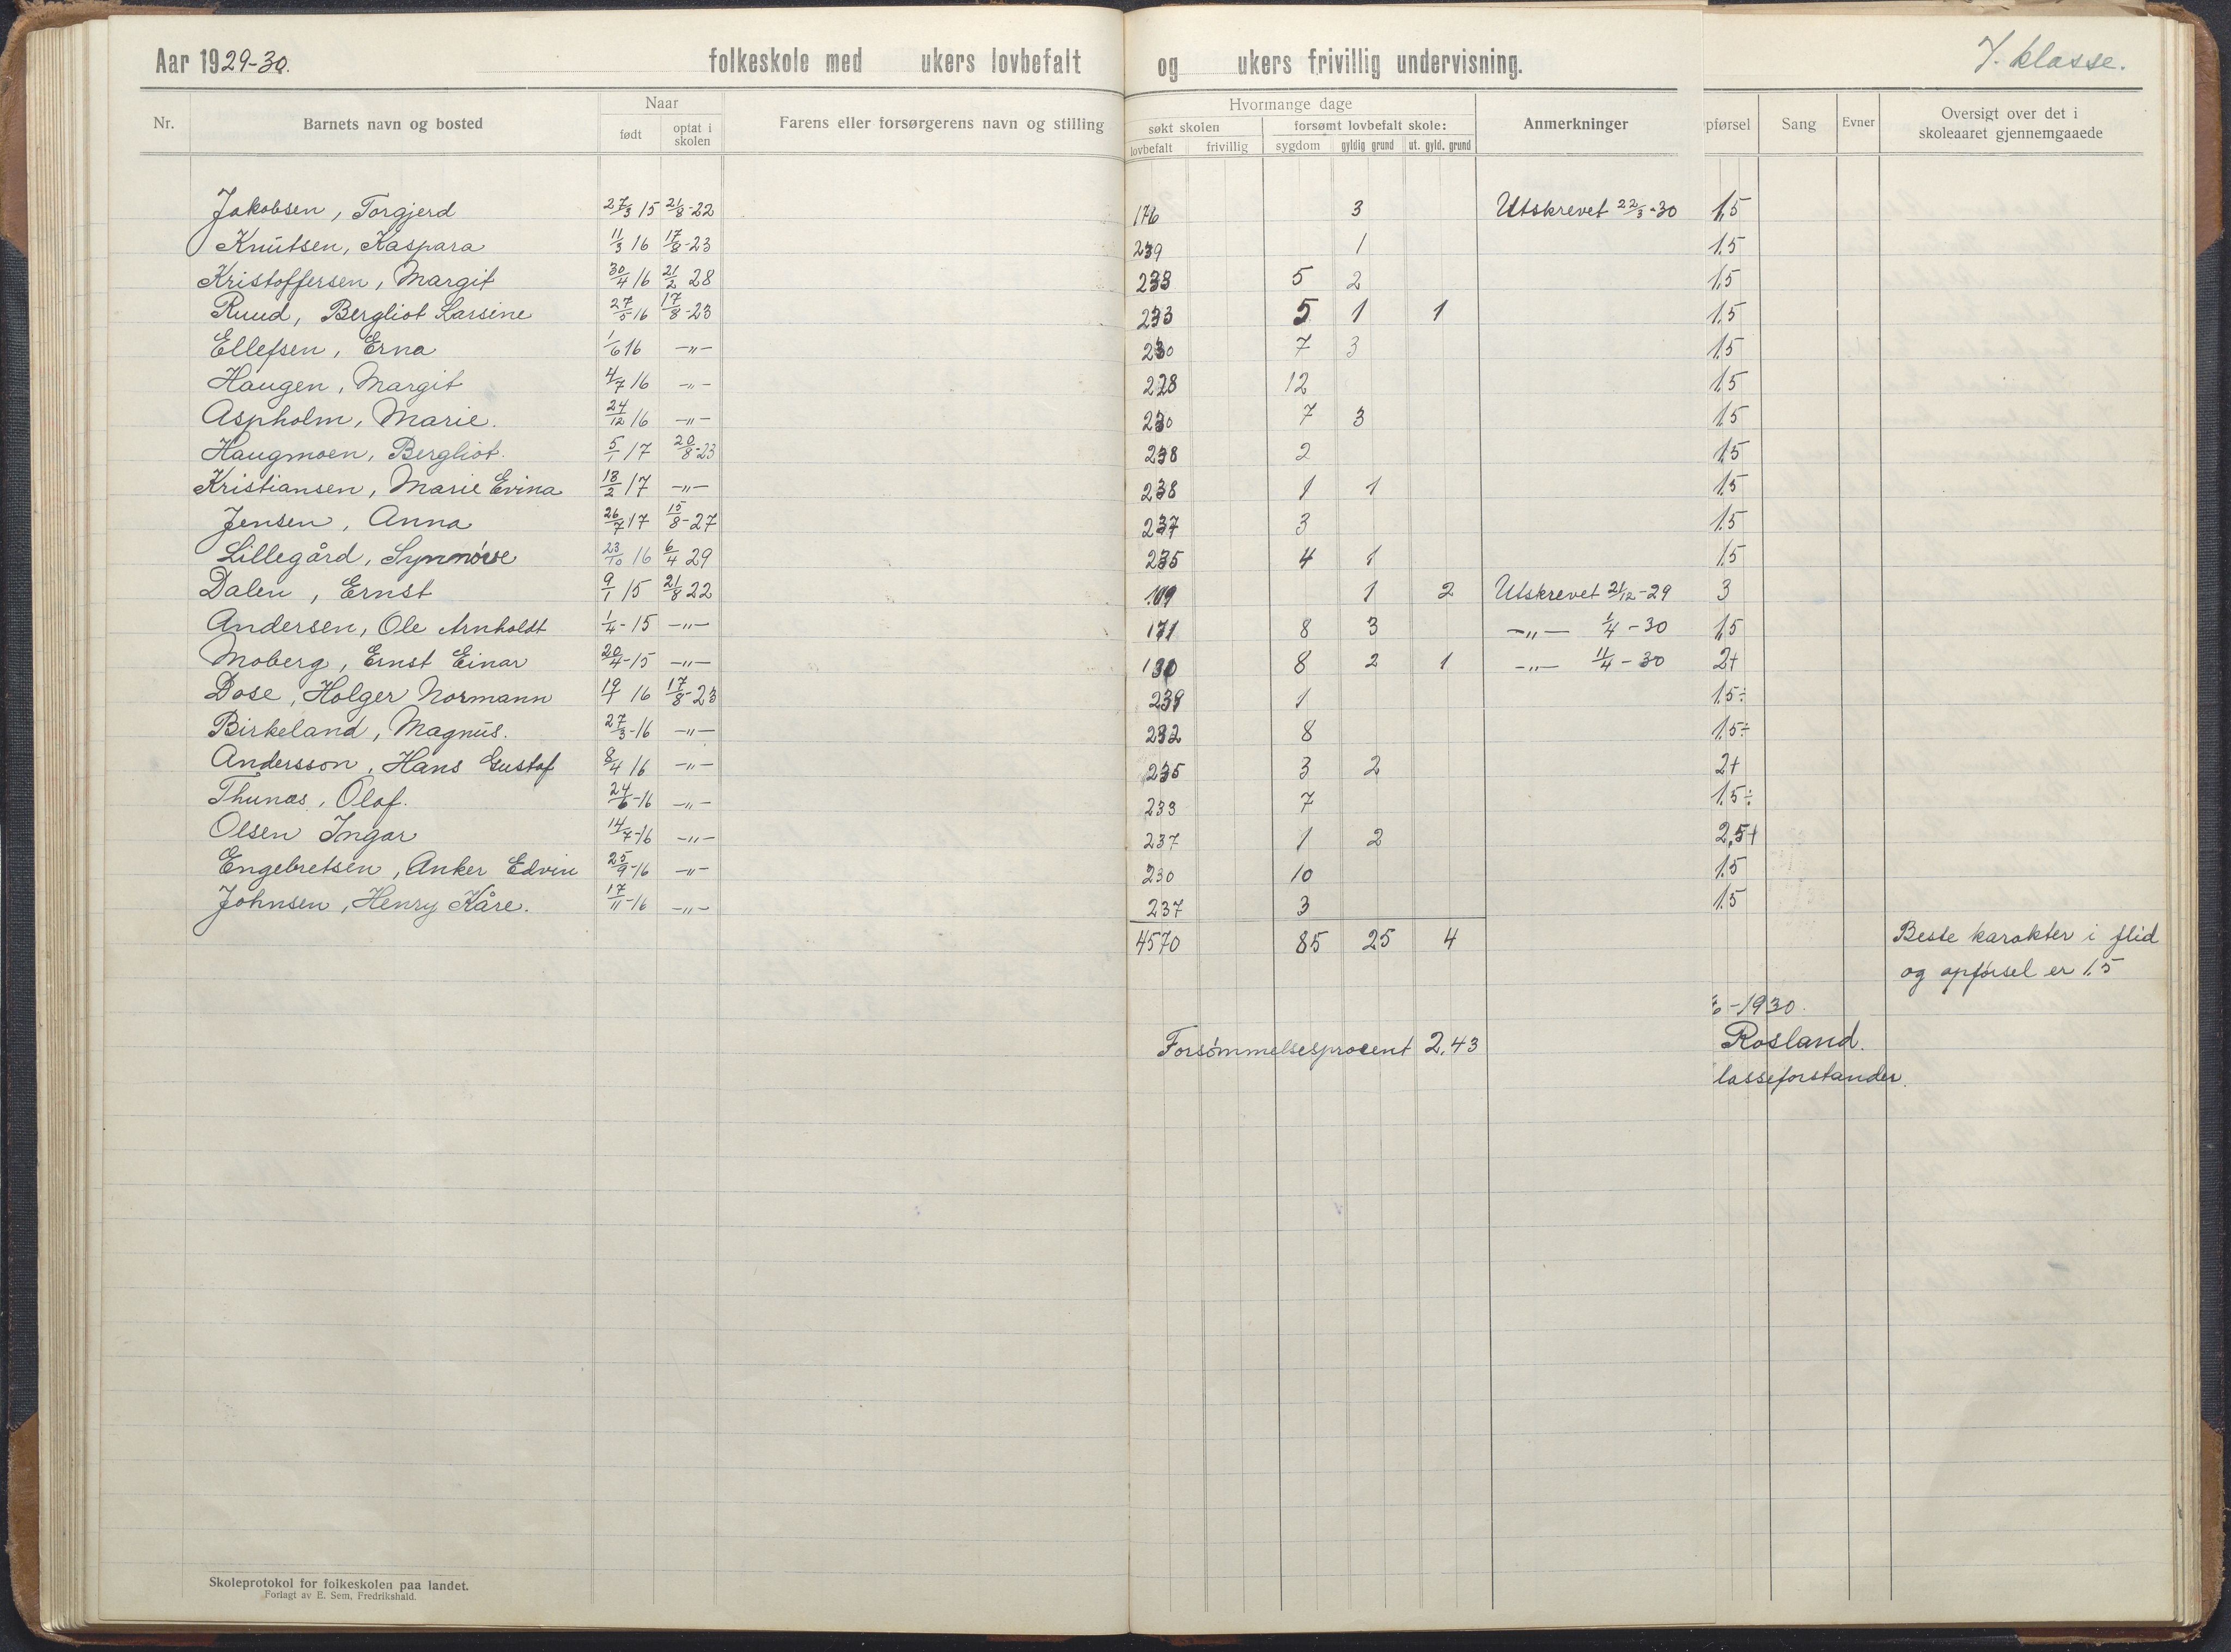 Aar 1929-30. folkeskole med ukers lovbefalt og ukers frivillig undervisning. 7. klasse.
Nr. Barnets navn og bosted Naar født optat i skolen Farens eller forsørgerens navn og stilling Hvormange dage søkt skolen lovbefalt frivillig forsømt lovbefalt skole: sygdom gyldig grund ut. gyld. grund Anmerkninger pførsel Sang Evner Oversigt over det i skoleaaret gjennemgaaede
Jakobsen, Torgjerd 27/3 15 21/8-22 176 3 Utskrevet 22/3-30 1,5
Knutsen, Kaspara 11/3 16 17/8-23 239 1 1.5
Kristoffersen, Margit 30/4 16 21/2 28 233 5 2 1.5
Ruud, Bergliot Larsine 27/5 16 17/8-23 233 5 1 1 1.5
Ellefsen, Erna 1/6 16 -"- 230 7 3 1.5
Haugen, Margit 4/7 16 -"- 228 12 1.5
Aspholm, Marie. 24/12 16 -"- 230 7 3 1.5
Haugmoen, Bergliot. 5/1 17 20/8-23 238 2 1.5
Kristiansen, Marie Evina 18/2 17 -"- 238 1 1 1.5
Jensen, Anna 26/7 17 15/8-27 237 3 1.5
Lillegård, Synnøve 23/10 16 6/4 29 235 4 1 1.5
Dalen, Ernst 9/1 15 21/8 22 109 1 2 Utskrevet 21/12-29 3
Andersen, Ole Arnholdt 1/4-15 -"- 171 8 3 -"- 1/4-30 1,5
Moberg, Ernst Einar 20/4-15 -"- 180 8 2 1 -"- 11/4-30 2+
Dose, Holger Normann 19/1 16 17/8-23 239 1 1.5÷
Birkeland, Magnus. 27/3-16 -"- 232 8 1.5÷
Andersson, Hans Gustaf 8/4 16 -"- 235 3 2 2+
Thunæs, Olaf. 24/6-16 -"- 233 7 1.5÷
Olsen Ingar 14/7-16 -"- 237 1 2 2,5+
Engebretsen, Anker Edvin 25/9-16 -"- 230 10 1.5
Johnsen, Henry Kåre. 17/11-16 -"- 237 3 1.5
4570 85 25 4 Beste karakter i flid
og opførsel er 1.5
-1930.
Forsømmelsesprocent 2.43 Rosland.
lasseforstander.
Skoleprotokol for folkeskolen paa landet.
Forlagt av E. Sem, Fredrikshald.